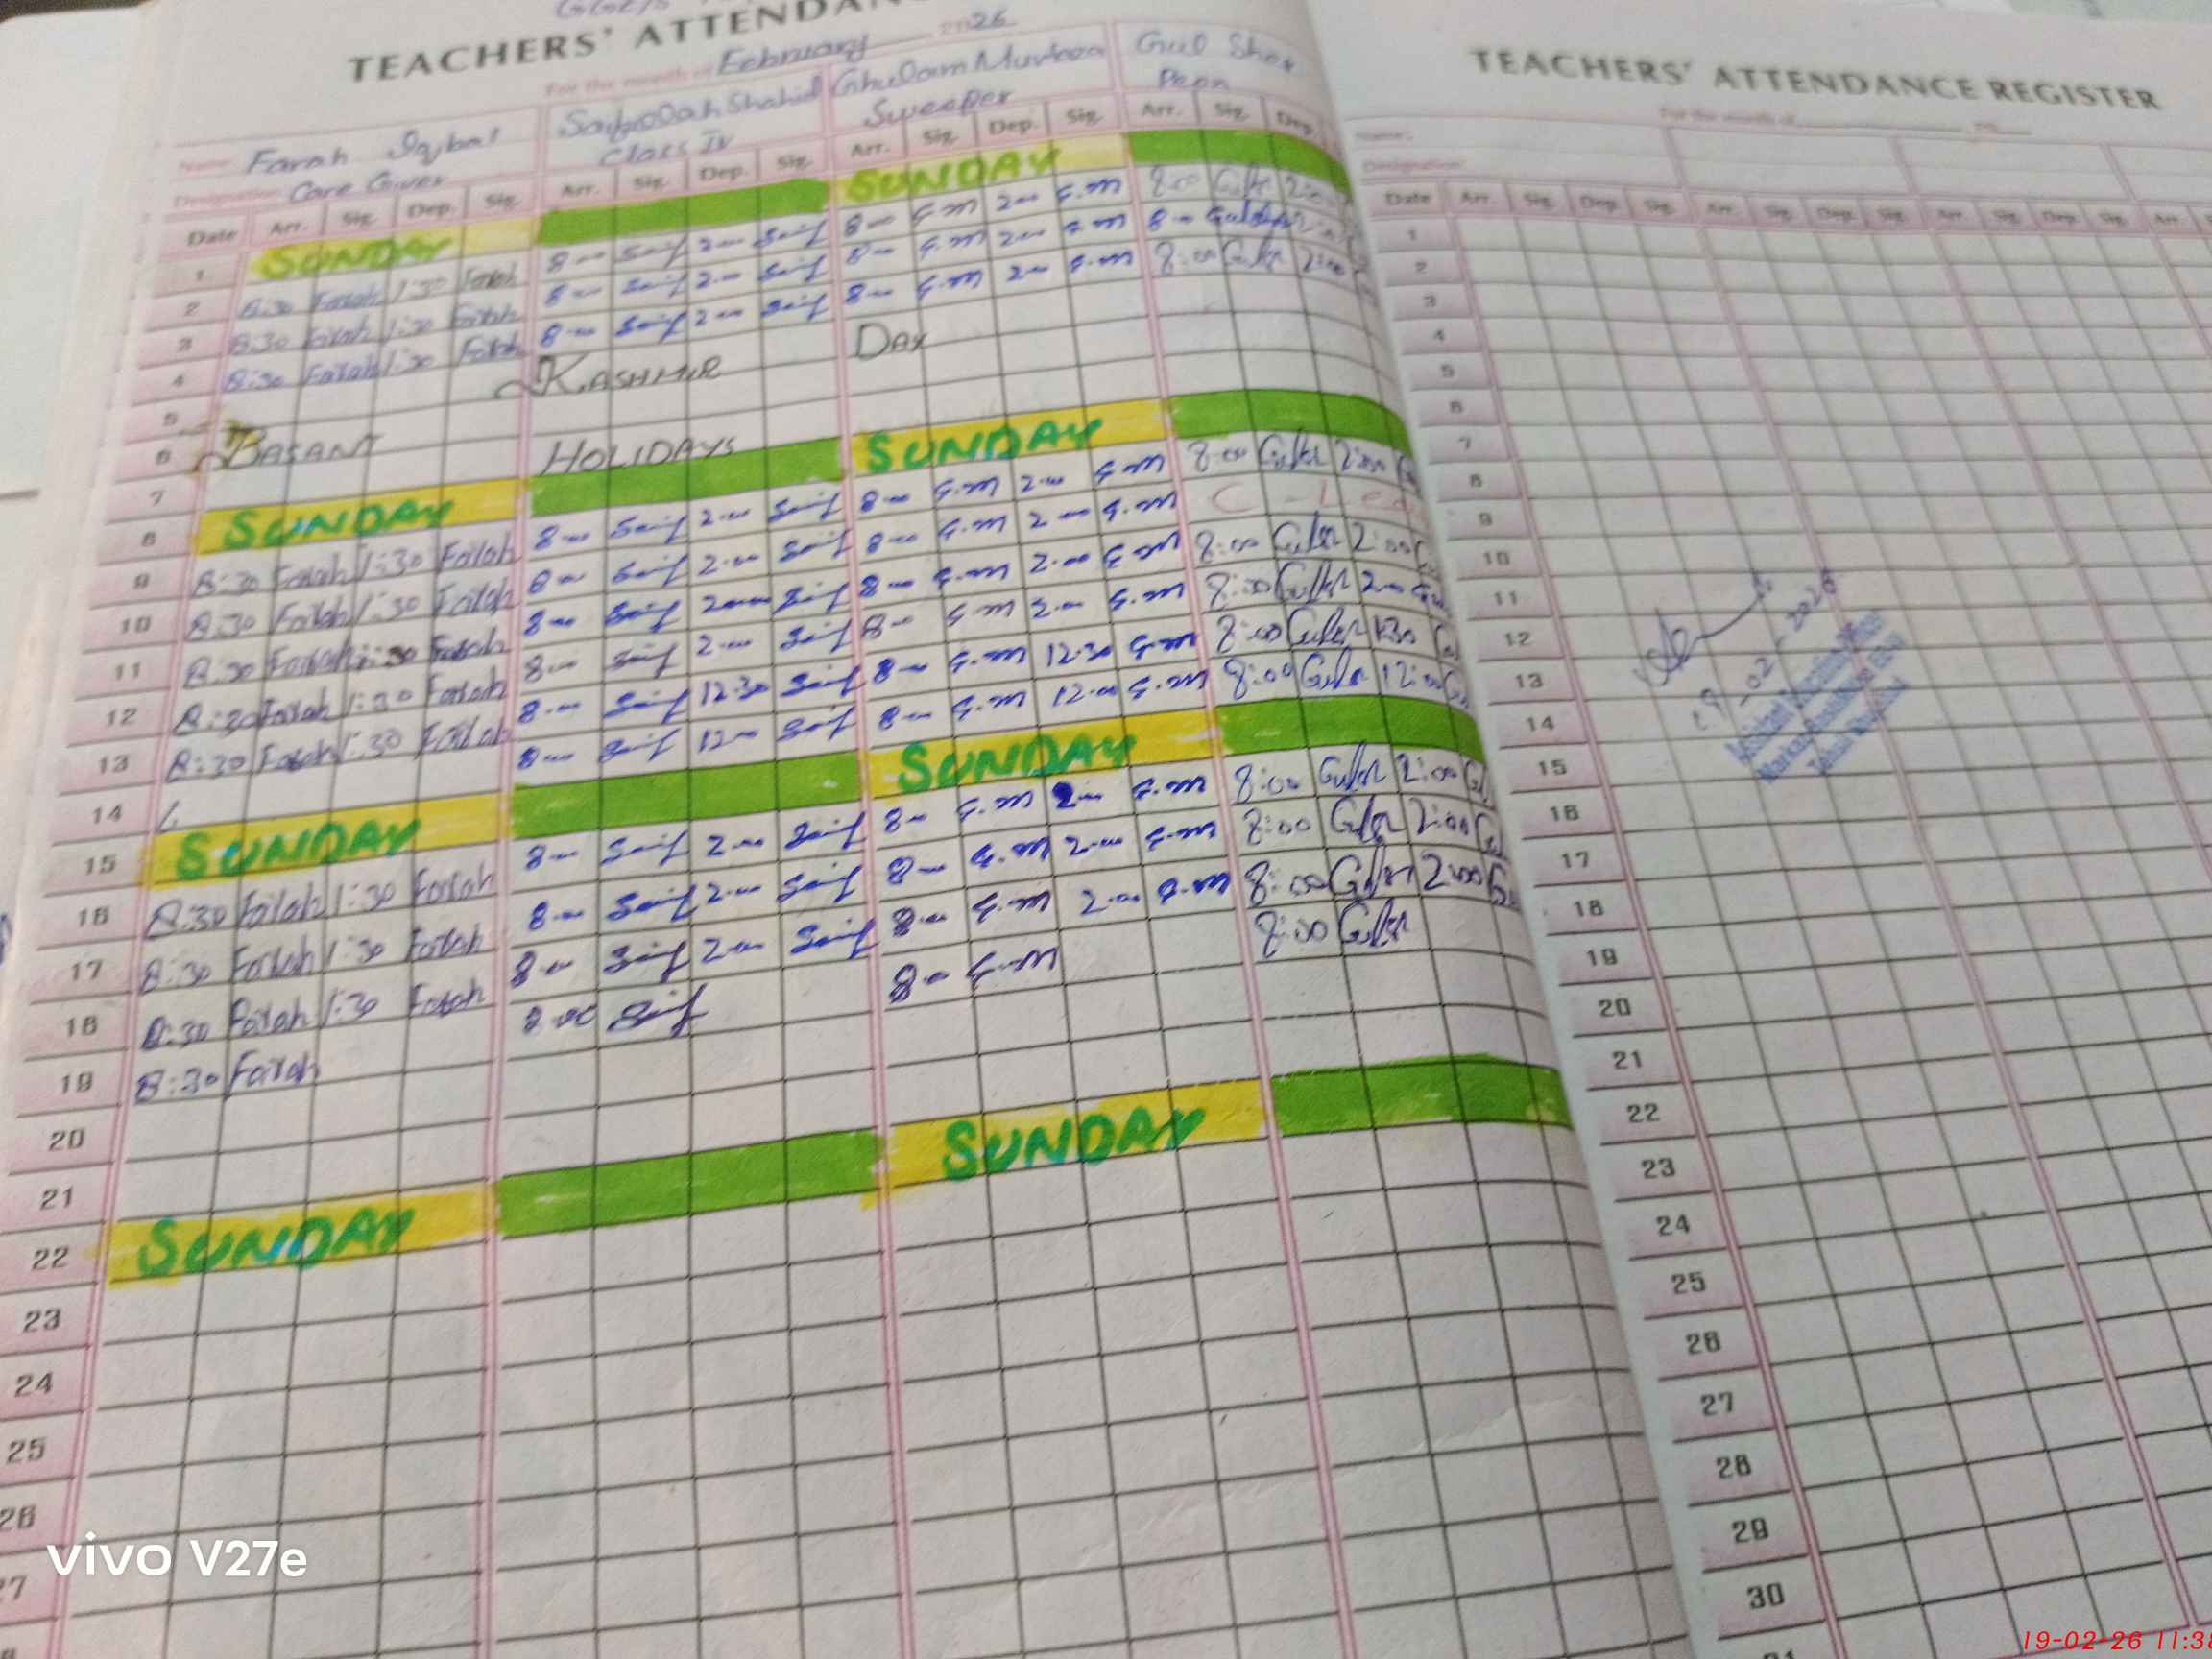 TEACHERS' ATTENDAN
For the month of February 2026
Name Farah Iqbal
Designation Care Giver
Class IV
Sweeper
Date Arr. Sig. Dep. Sig. Arr. Sig. Dep. Sig. Arr. Sig. Dep. Sig. Arr. Sig. Dep.
1 SUNDAY SUNDAY
2 8:30 Farah 1:30 Farah 8-00 Saif 2-00 Saif 8-00 G.M 2-00 G.M 8:00
3 8:30 Farah 1:30 Farah 8-00 Saif 2-00 Saif 8-00 G.M 2-00 G.M
4 8:30 Farah 1:30 Farah 8-00 Saif 2-00 Saif 8-00 G.M 2-00 G.M 8:00
5 KASHMIR DAY
6 BASANT HOLIDAYS
7
8 SUNDAY SUNDAY
9 8:30 Farah 1:30 Farah 8-00 Saif 2-00 Saif 8-00 G.M 2-00 G.M 8:00
10 8:30 Farah 1:30 Farah 8-00 Saif 2-00 Saif 8-00 G.M 2-00 G.M
11 8:30 Farah 1:30 Farah 8-00 Saif 2-00 Saif 8-00 G.M 2-00 G.M 8:00
12 8:30 Farah 1:30 Farah 8-00 Saif 2-00 Saif 8-00 G.M 2-00 G.M 8:00
13 8:30 Farah 1:30 Farah 8-00 Saif 12-30 Saif 8-00 G.M 12-30 G.M 8:00
14 8-00 Saif 12-00 Saif 8-00 G.M 12-00 G.M 8:00
15 SUNDAY SUNDAY
16 8:30 Farah 1:30 Farah 8-00 Saif 2-00 Saif 8-00 G.M G.M 8:00 2:00
17 8:30 Farah 1:30 Farah 8-00 Saif 2-00 Saif 8-00 G.M 2-00 G.M 8:00 2:00
18 8:30 Farah 1:30 Farah 8-00 Saif 2-00 Saif 8-00 G.M 2-00 G.M 8:00 2:00
19 8:30 Farah 8-00 Saif 8-00 G.M 8:00
20
21
22 SUNDAY SUNDAY
23
24
25
26
27
TEACHERS' ATTENDANCE REGISTER
For the month of
Name
Designation
Date Arr. Sig. Dep. Sig. Arr. Sig. Dep. Sig. Arr. Sig. Dep. Sig. Arr.
1
2
3
4
5
6
7
8
9
10
11
12
13
14
15
16
17
18
19
20
21
22
23
24
25
26
27
28
29
30
vivo V27e
19-02-26 11:38